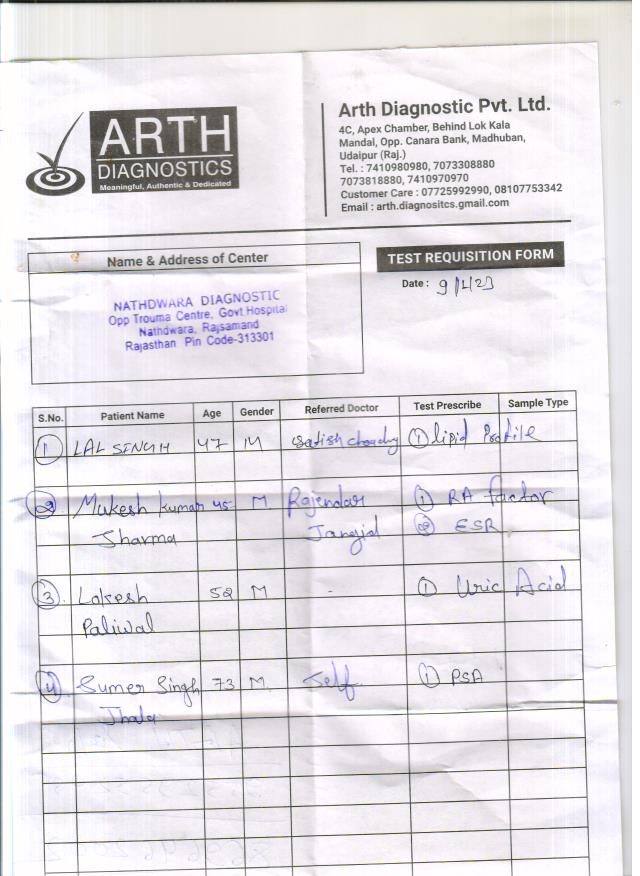 ARTH
DIAGNOSTICS
Meaningful, Authentic & Dedicated
Arth Diagnostic Pvt. Ltd.
4C, Apex Chamber, Behind Lok Kala
Mandal, Opp. Canara Bank, Madhuban,
Udaipur (Raj.)
Tel. : 7410980980, 7073308880
7073818880, 7410970970
Customer Care : 07725992990, 08107753342
Email : arth.diagnositcs.gmail.com
Name & Address of Center
NATHDWARA DIAGNOSTIC
Opp Trouma Centre, Govt Hospital
Nathdwara, Rajsamand
Rajasthan Pin Code-313301
TEST REQUISITION FORM
Date :
S.No. Patient Name Age Gender Referred Doctor Test Prescribe Sample Type
1 LAL SINGH 47 M Satish choudhy 1 lipid Profile
2 Mukesh Kumar 45 M. Rajendar 1 RA factor
Sharma 2 ESR
3. Lokesh 52 M - 1 Uric Acid
Paliwal
4 Sumer Singh 73 M. Self 1 PSA
Jhala